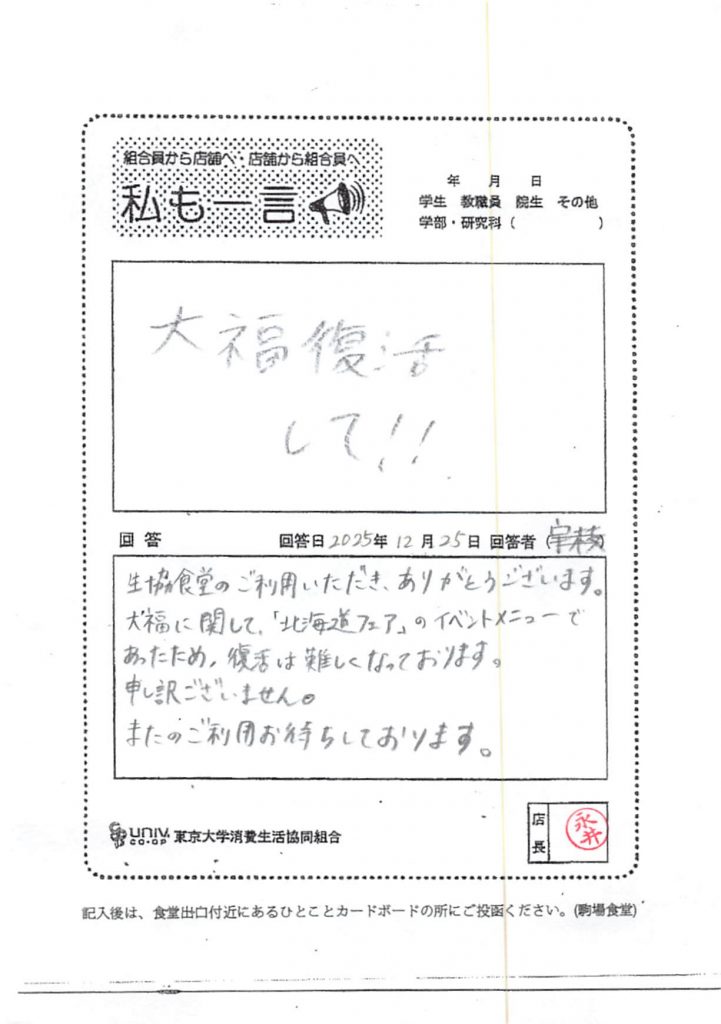 組合員から店舗へ・店舗から組合員へ
私も一言
年 月 日
学生 教職員 院生 その他
学部・研究科 ( )
大福復活
して!!
回答 回答日 2025年 12月 25日 回答者 ( )
生協食堂のご利用いただき、ありがとうございます。
大福に関して、「北海道フェア」のイベントメニューで
あったため、復活は難しくなっております。
申し訳ございません。
またのご利用お待ちしております。
UNIV. CO-OP 東京大学消費生活協同組合
店長 永井
記入後は、食堂出口付近にあるひとことカードボードの所にご投函ください。(駒場食堂)